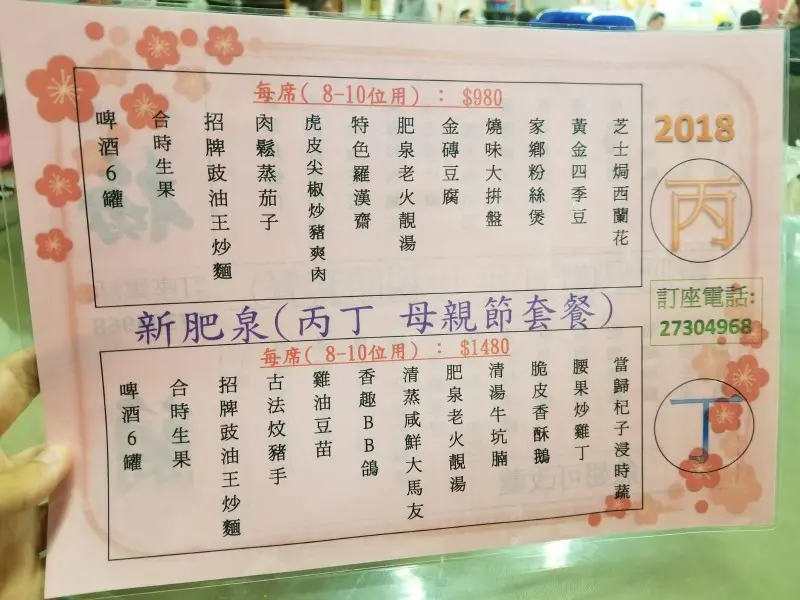 2018
丙
每席( 8-10位用) : $980
芝士焗西蘭花
黃金四季豆
家鄉粉絲煲
燒味大拼盤
金磚豆腐
肥泉老火靚湯
特色羅漢齋
虎皮尖椒炒豬爽肉
肉鬆蒸茄子
招牌豉油王炒麵
合時生果
啤酒6罐
訂座電話:
27304968
新肥泉(丙丁 母親節套餐)
丁
每席( 8-10位用) : $1480
當歸杞子浸時蔬
腰果炒雞丁
脆皮香酥鵝
清湯牛坑腩
肥泉老火靚湯
清蒸咸鮮大馬友
香趣BB鴿
雞油豆苗
古法炆豬手
招牌豉油王炒麵
合時生果
啤酒6罐